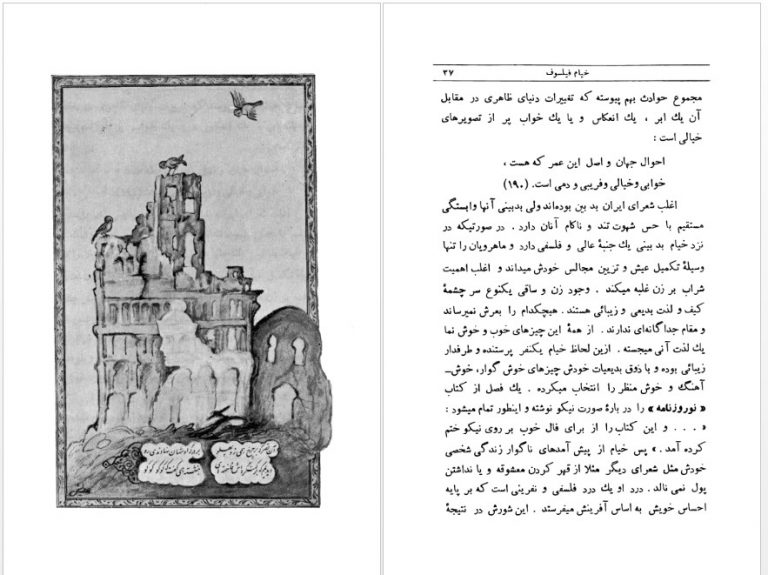 خیام فیلسوف
۳۷
مجموع حوادث بهم پیوسته که تغییرات دنیای ظاهری در مقابل
آن یك ابر ، یك انعکاس و یا یك خواب پر از تصویرهای
خیالی است :
احوال جهان و اصل این عمر که هست ،
خوابی و خیالی و فریبی و دمی است. (۱۹۰)
اغلب شعرای ایران بد بین بوده‌اند ولی بدبینی آنها وابستگی
مستقیم با حس شهوت تند و ناکام آنان دارد . در صورتیکه در
نزد خیام بد بینی یك جنبهٔ عالی و فلسفی دارد و ماهرویان را تنها
وسیلهٔ تکمیل عیش و تزیین مجالس خودش میداند و اغلب اهمیت
شراب بر زن غلبه میکند . وجود زن و ساقی یکنوع سر چشمهٔ
کیف و لذت بدیعی و زیبائی هستند . هیچکدام را بعرش نمیرساند
و مقام جداگانه‌ای ندارند . از همهٔ این چیزهای خوب و خوش نما
یك لذت آنی میجسته . ازین لحاظ خیام یکنفر پرستنده و طرفدار
زیبائی بوده و با ذوق بدیعیات خودش چیزهای خوش گوار، خوش‌ــ
آهنگ و خوش منظر را انتخاب میکرده . یك فصل از کتاب
« نوروزنامه » را در بارهٔ صورت نیکو نوشته و اینطور تمام میشود :
« . . . و این کتاب را از برای فال خوب بر روی نیکو ختم
کرده آمد . » پس خیام از پیش آمدهای ناگوار زندگی شخصی
خودش مثل شعرای دیگر مثلا از قهر کردن معشوقه و یا نداشتن
پول نمی نالد . درد او یك درد فلسفی و نفرینی است که بر پایه
احساس خویش به اساس آفرینش میفرستد . این شورش در نتیجهٔ